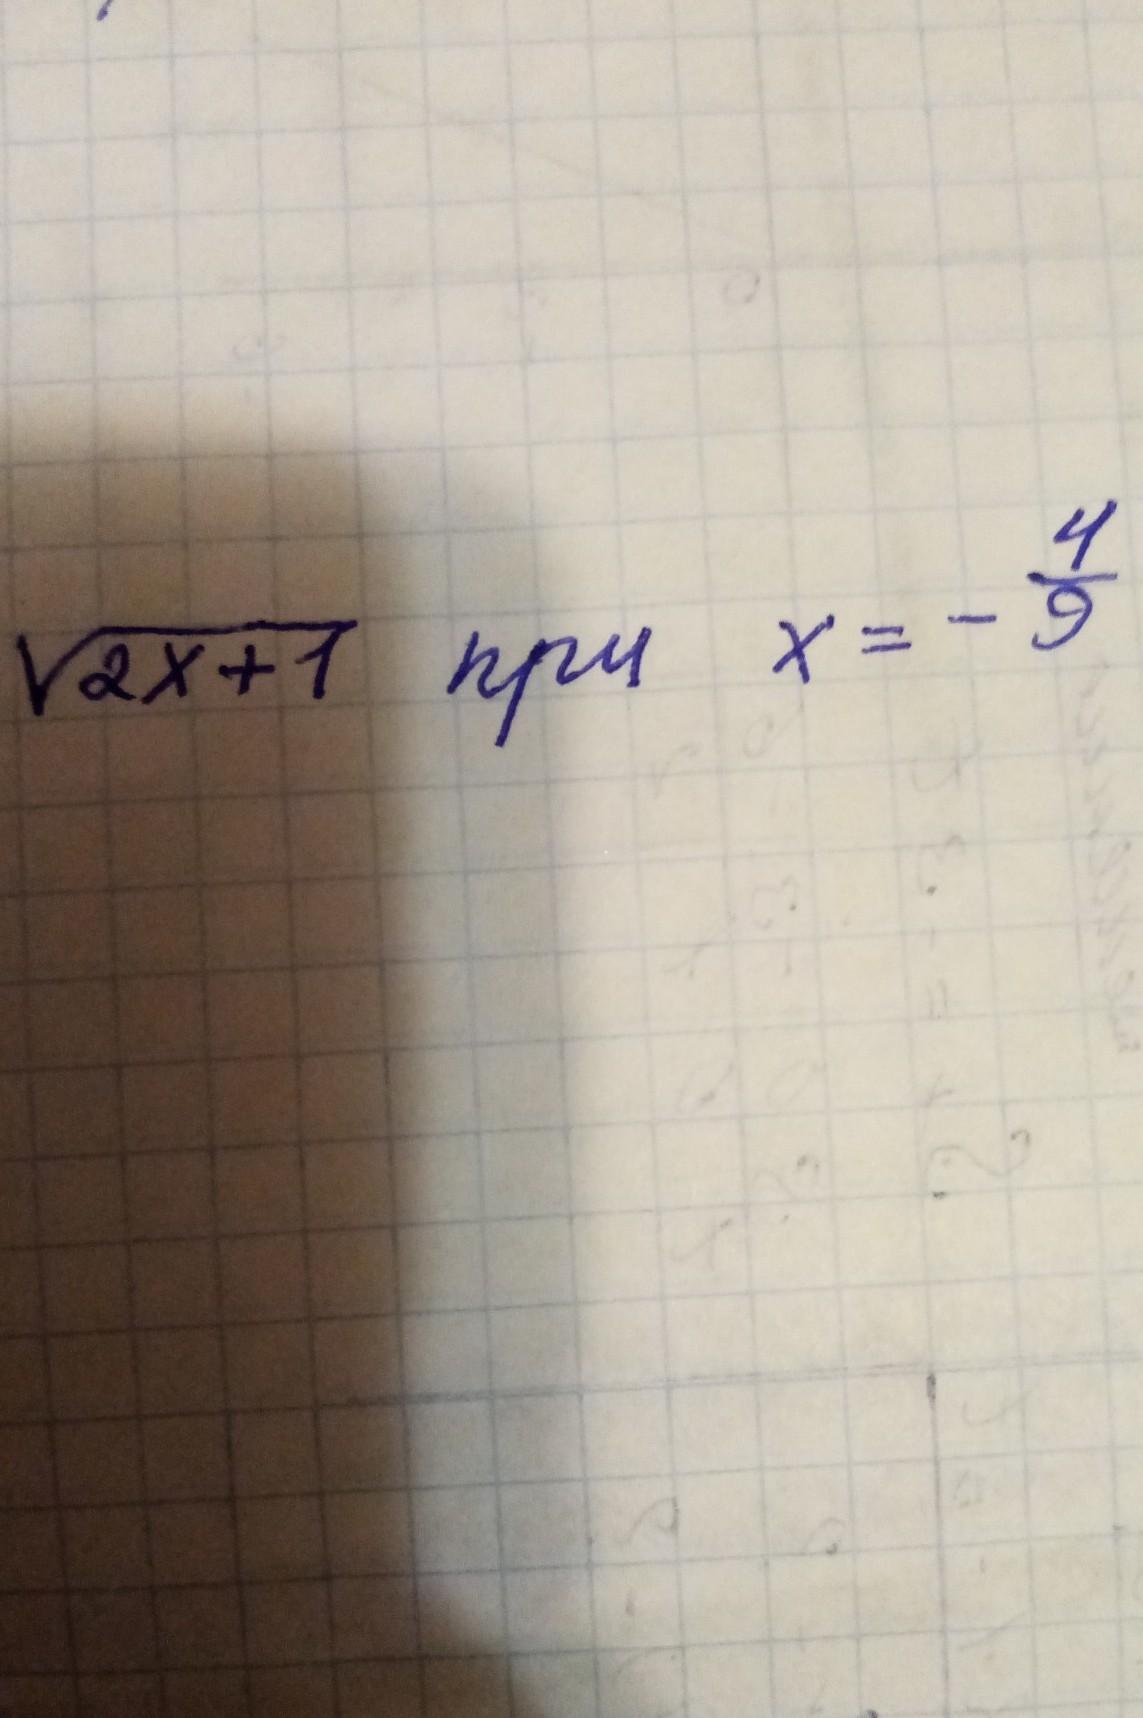 √2x+1 при x = - 4/9